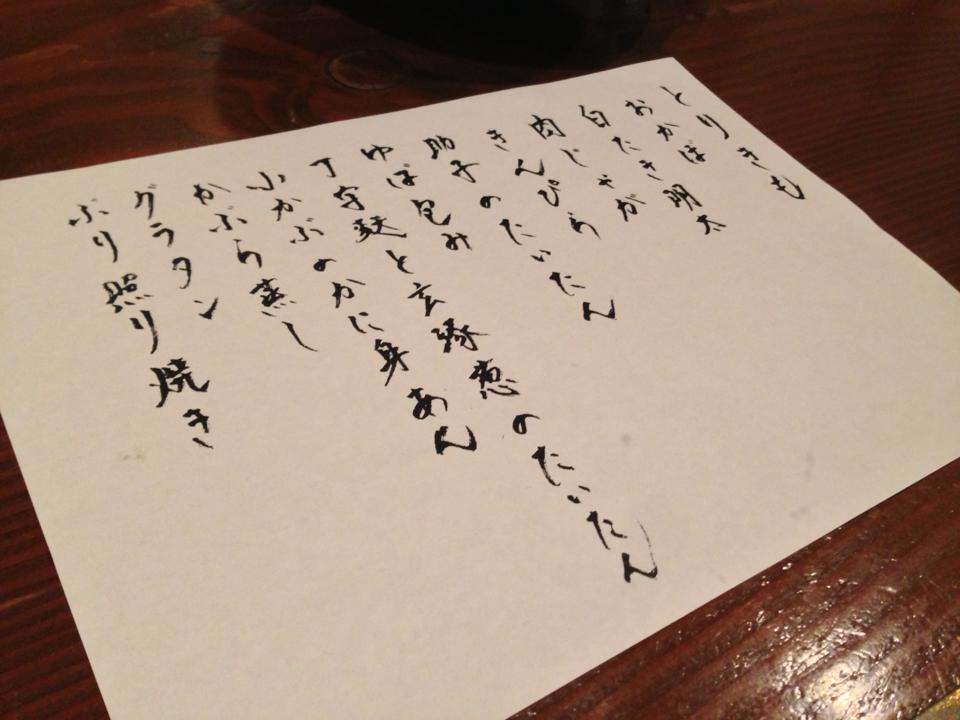 とりきも
おかぼ
白たき明太
肉じゃが
きんぴら
助子のたいたん
ゆば包み
丁字麩と葱のたいたん
小かぶのかに身あん
かぶら蒸し
グラタン
ぶり照り焼き